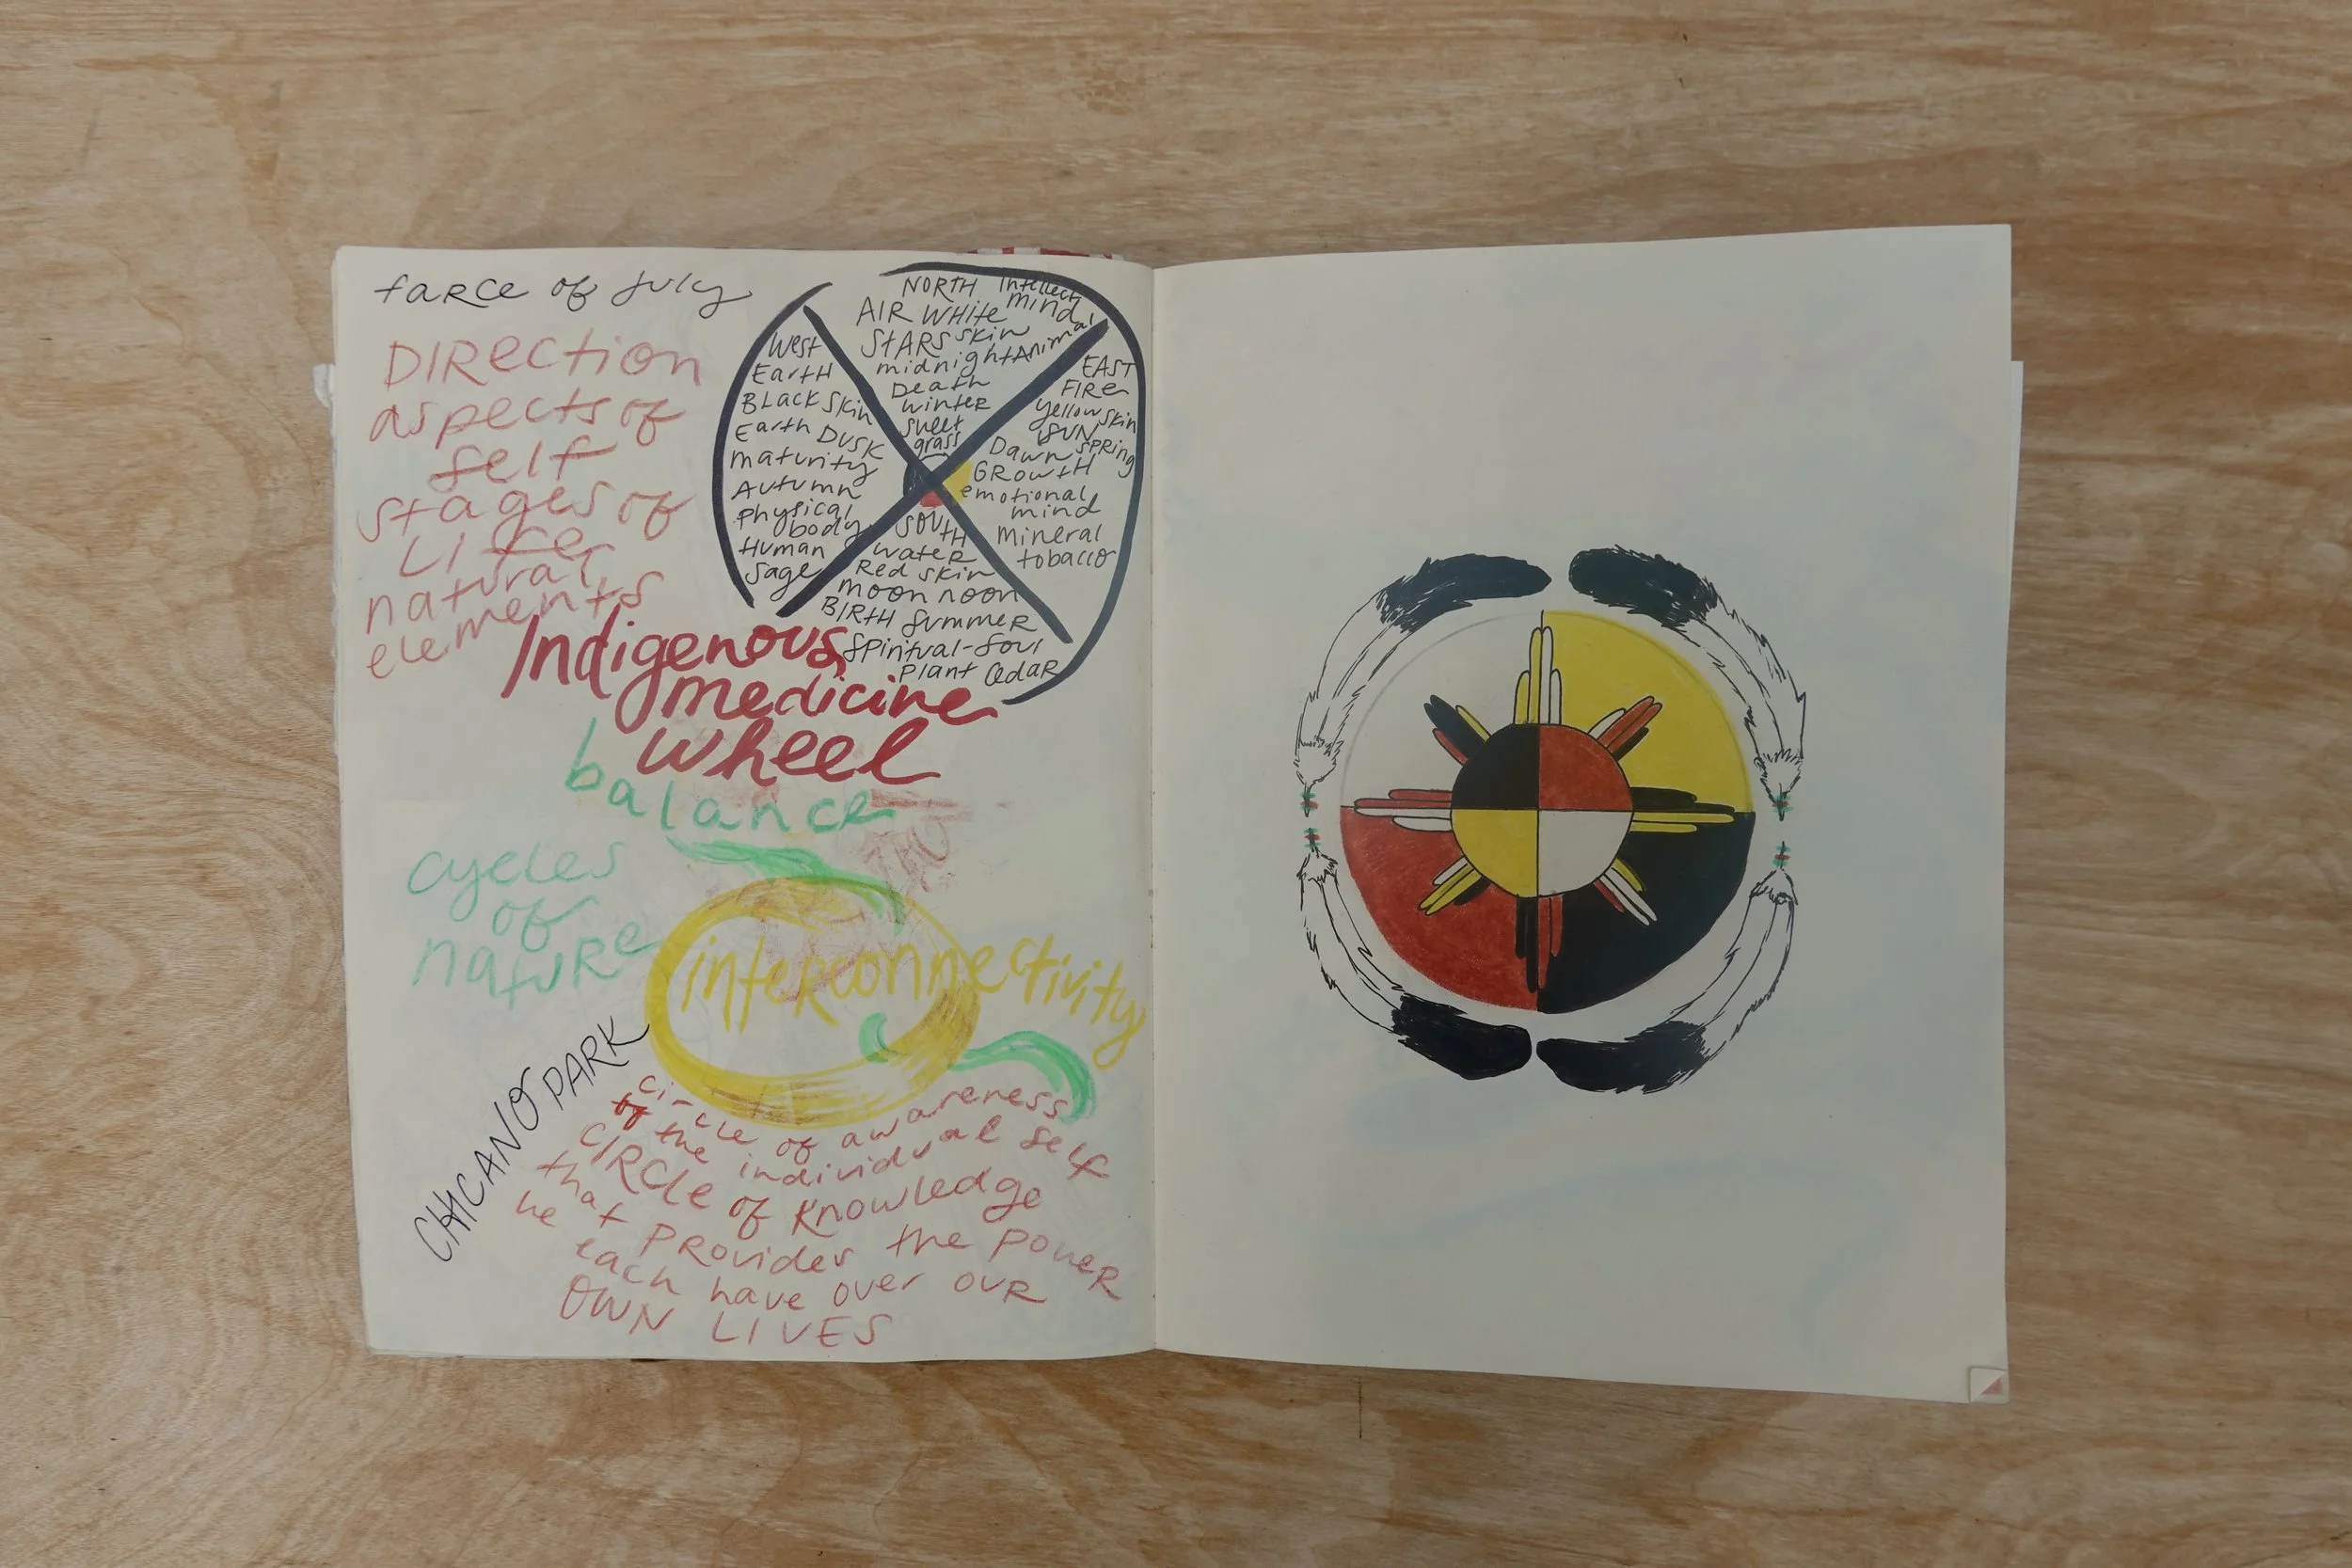 farce of July
DIRection
aspects of
self
stages of
Life
natural
elements
NORTH Intellect
mind
AIR WHite
STARS skin
midnight Animal
Death
winter
sweet
grass
West
Earth
BLack skin
Earth Dusk
maturity
Autumn
Physical
body
Human
Sage
EAST
FIRe
Yellow skin
SUN
Dawn SPRing
GRowtH
emotional
mind
mineral
tobacco
SOUTH
water
Red skin
moon noon
BIRTH Summer
Spiritual-Soul
Plant Cedar
Indigenous
medicine
wheel
balance
cycles
of
natuRe
inteRconnectivity
CHICANO PARK
circle of awareness
of the individual self
ciRCle of knowledge
that PRovides the poweR
we each have over ouR
OWN LIVES